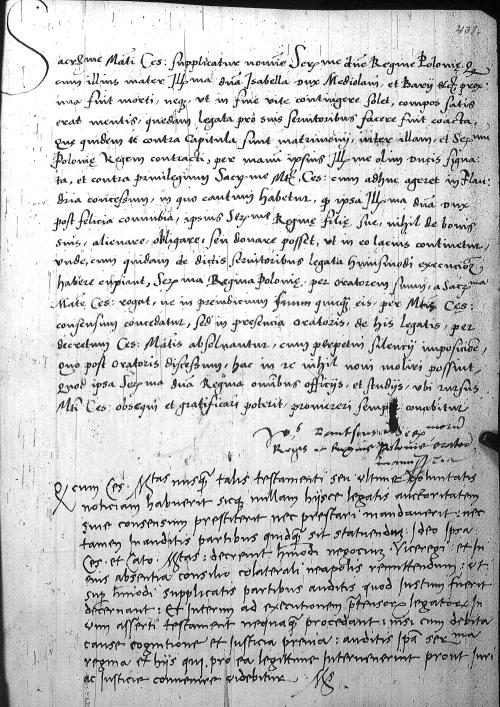 431.
Sacr me Mati Ces: supplicatur nomine Ser me dne Regine Polonie, q
cum illius mater Ill ma dna Isabella dux Mediolani, et Barij proxi
ma fuit morti, neq. ut in fine vite contingere solet, compos satis
erat mentis, quedam legata pro suis servitoribus facere fuit coacta,
que quidem contra Capitula sunt matrimonij, inter illam, et Ser mum
Polonie Regem contracti, per manū ipsius Ill me olim ducis signa
ta, et contra privilegium Sacr me Mtis Ces: cum adhuc ageret in Flan
dria concessum, in quo cautum habetur, q ipsa Ill ma dna dux
post felicia connubia, ipsius Ser me Regine filie sue, nihil de bonis
suis, alienare, obligare, seu donare posset, ut in eo lacius continetur,
unde, cum quidam de dictis servitoribus legata huiusmodi execucioni
habere cupiant, Ser ma Regina Polonie, per oratorem suum, a Sacr ma
Mate Ces: rogat, ne in preiudicium suum quicq eis, per Mtis Ces:
consensum concedatur, sed in presencia oratoris, de his legatis, per
decretum Ces: Matis absoluantur, cum perpetui silencij imposicione,
quo post oratoris discessum, hac in re nihil novi moliri possint,
Quod ipsa Ser ma dna Regina omnibus officijs, et studijs, ubi rursus
Mti Ces: obsequi et gratificari poterit, promereri semper conabitur
Jo.s Dantiscus
Regis et Regine Polonie orator
manu
Q cum Ces. Mtas nusq talis testamenti seu ultime voluntatis
noticiam habuerit sicq nullam hijsce legatis auctoritatem
sive consensum prestiterit nec prestari mandaverit: nec
tamen inauditis partibus quidq sit statuendum: Ideo ipsa
Ces. et Cato. Mtas: decrevit hmodi negocium Viceregi et in
eius absentia consilio colaterali neapolis remittendum: ut
sup hmodi supplicatis partibus auditis quod iustum fuerit
decernant: Et interim ad executionem legatorum in
vim asserti testamenti nequaq procedant: nisi cum debita
cause cognitione et iusticia previa: auditis ipsa ser ma
regina et hijs qui pro ea legittime intervenerint prout iuri
ac iusticie convenire videbitur.